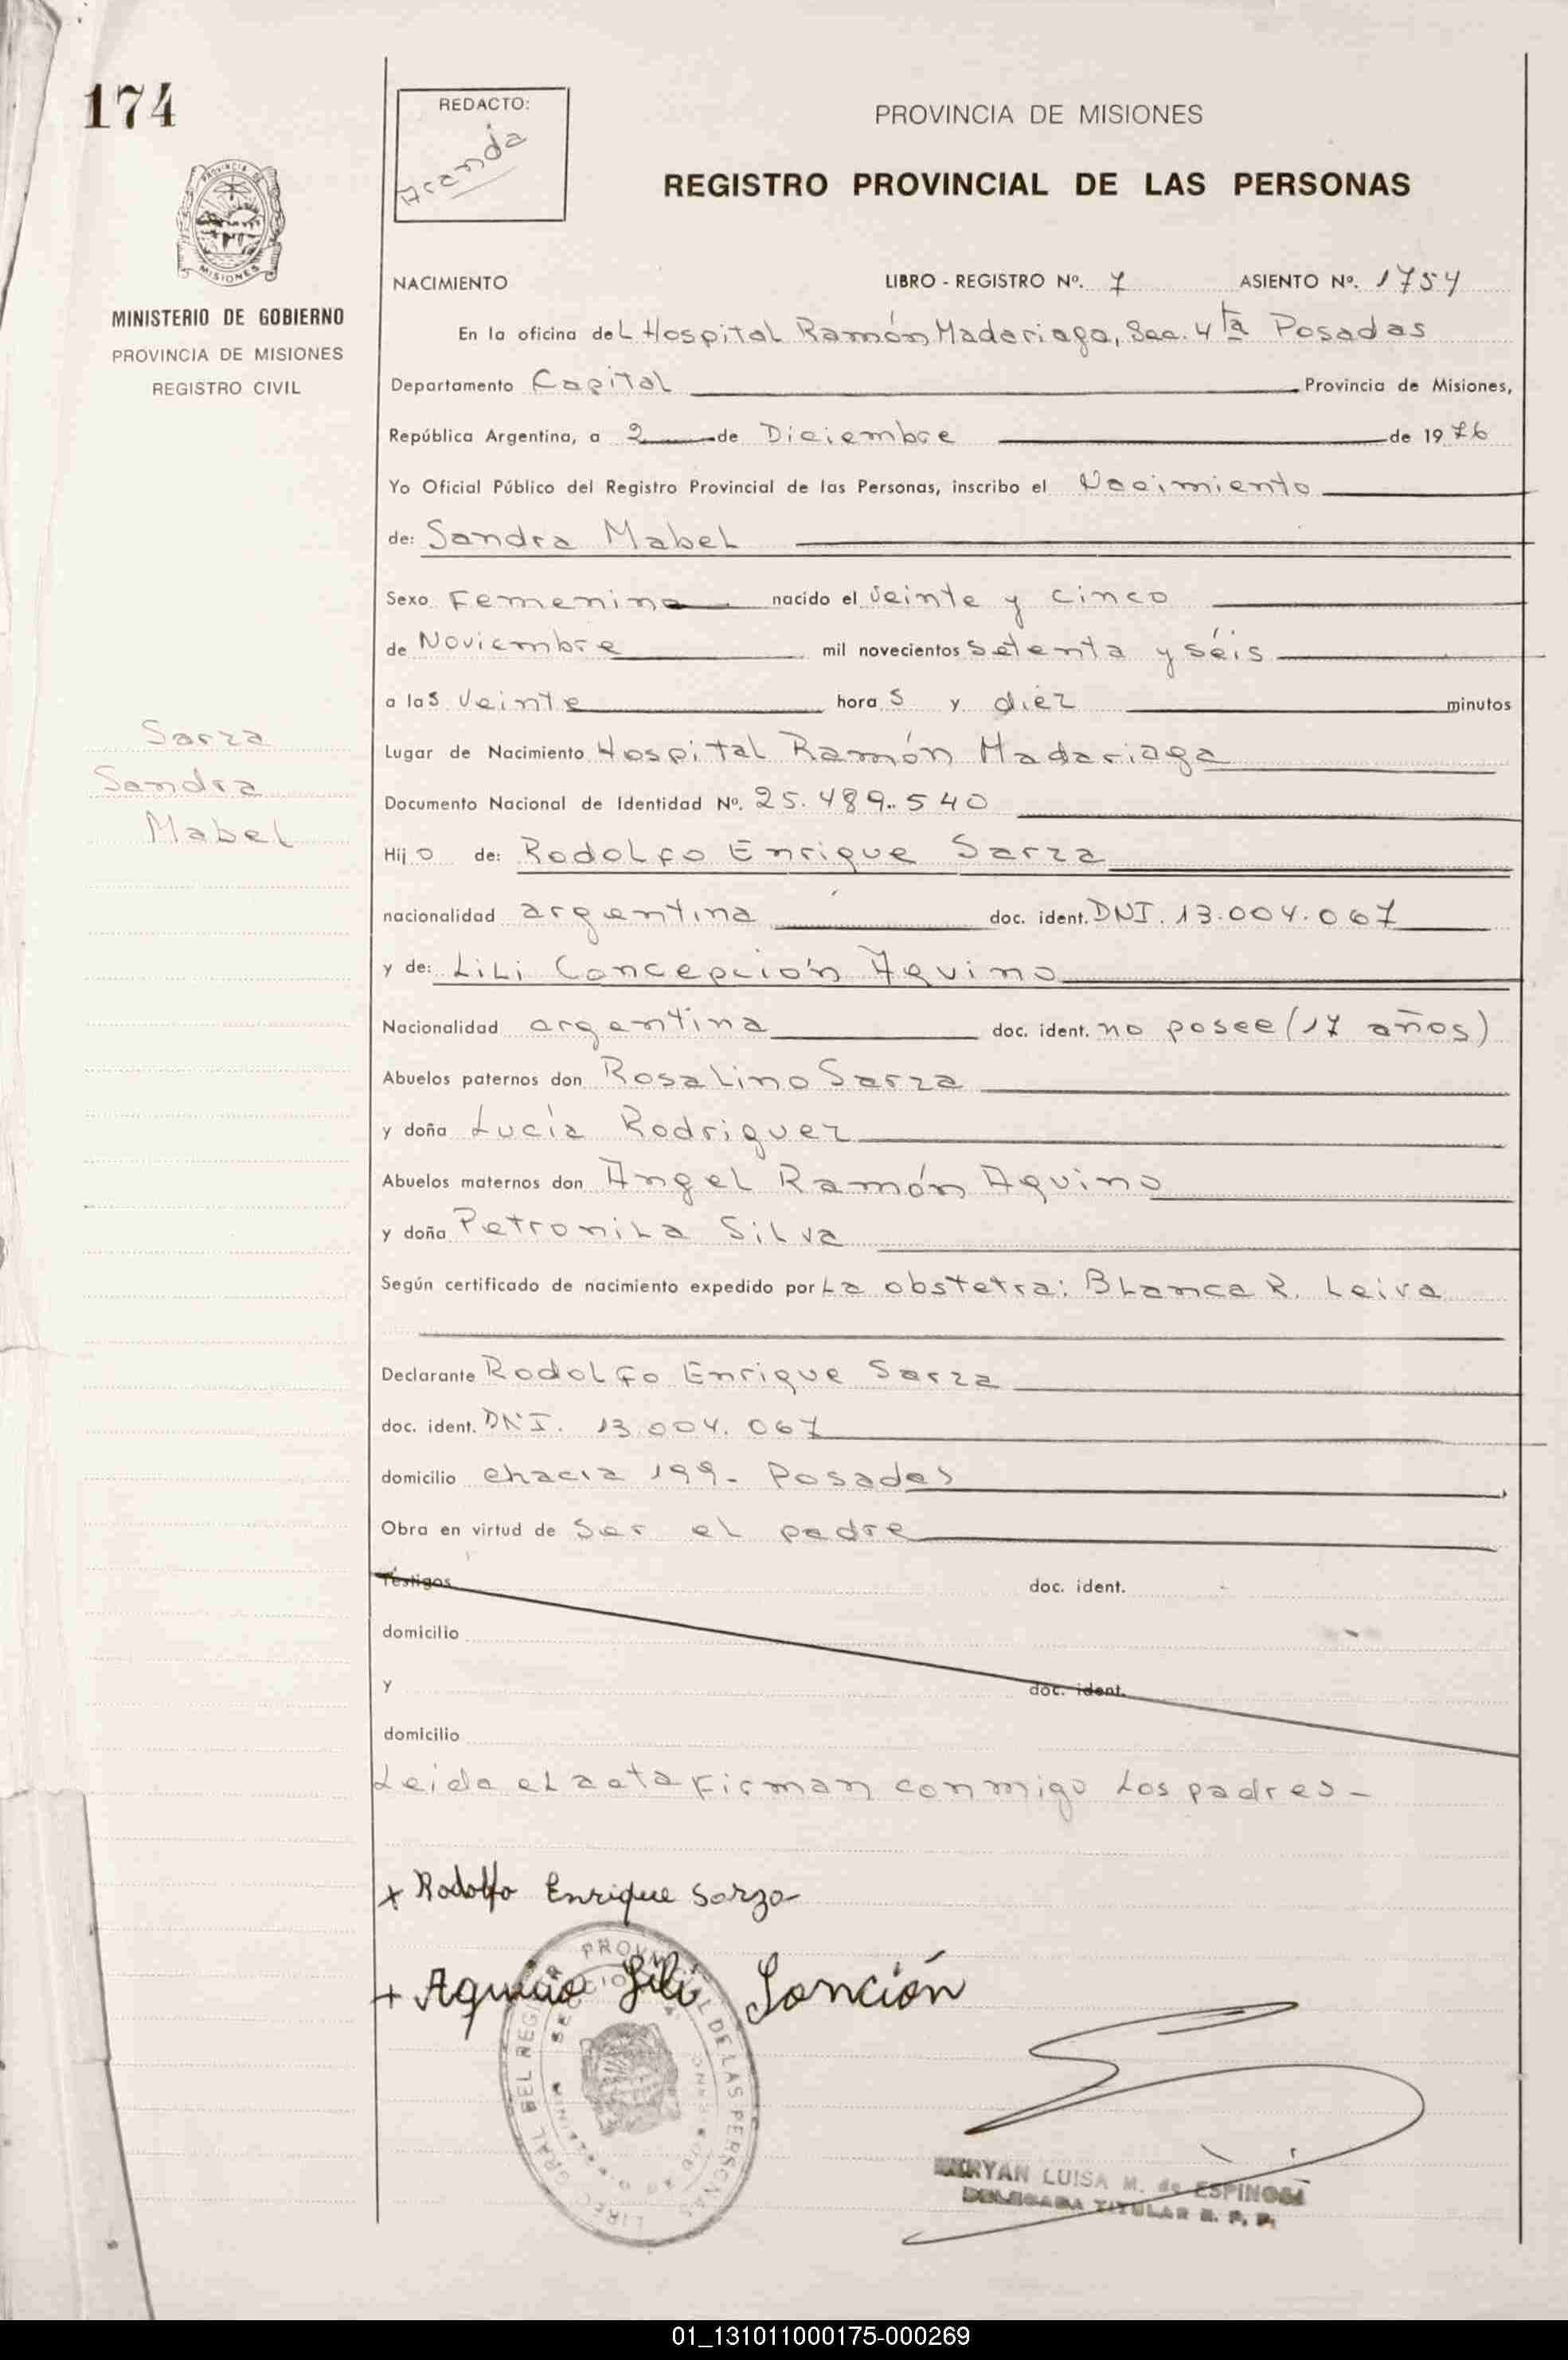 174
REDACTO:
Aranda
PROVINCIA DE MISIONES
REGISTRO PROVINCIAL DE LAS PERSONAS
PROVINCIA DE
MISIONES
MINISTERIO DE GOBIERNO
PROVINCIA DE MISIONES
REGISTRO CIVIL
NACIMIENTO LIBRO - REGISTRO Nº. 7 ASIENTO Nº. 1754
En la oficina del Hospital Ramón Madariaga, Sec. 4ta Posadas
Departamento Capital Provincia de Misiones,
República Argentina, a 2 de Diciembre de 1976
Yo Oficial Público del Registro Provincial de las Personas, inscribo el Nacimiento
de: Sandra Mabel
Sexo Femenino nacido el veinte y cinco
de Noviembre mil novecientos setenta y séis
a las veinte horas y diez minutos
Sarza
Sandra
Mabel
Lugar de Nacimiento Hospital Ramón Madariaga
Documento Nacional de Identidad Nº. 25.489.540
Hijo de: Rodolfo Enrique Sarza
nacionalidad argentina doc. ident. DNI. 13.004.067
y de: Lili Concepción Aquino
Nacionalidad argentina doc. ident. no posee (17 años)
Abuelos paternos don Rosalino Sarza
y doña Lucía Rodriguez
Abuelos maternos don Angel Ramón Aquino
y doña Petronila Silva
Según certificado de nacimiento expedido por La obstetra: Blanca R. Leiva
Declarante Rodolfo Enrique Sarza
doc. ident. DNI. 13.004.067
domicilio chacra 199- Posadas
Obra en virtud de ser el padre
Testigos doc. ident.
domicilio
y doc. ident.
domicilio
Leida el acta firman conmigo los padres-
x Rodolfo Enrique Sarza
+ Aquino Lili Conción
PROVINCIAL DE LAS PERSONAS
MERYAN LUISA M. de ESPINOSA
DELEGADA TITULAR R. P. P.
01_131011000175-000269